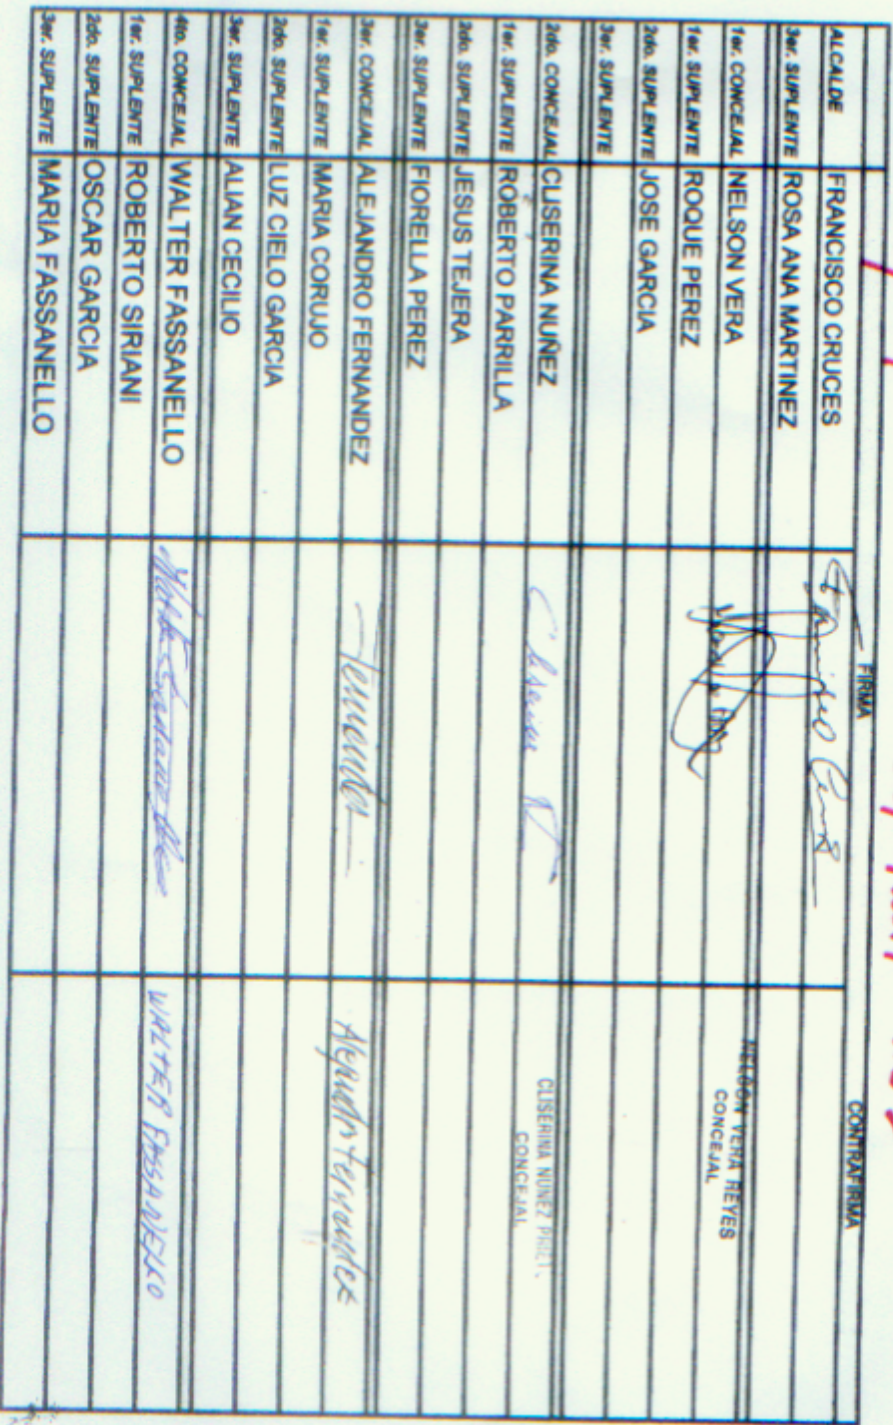 FIRMA CONTRAFIRMA
ALCALDE FRANCISCO CRUCES
3er. SUPLENTE ROSA ANA MARTINEZ
1er. CONCEJAL NELSON VERA NELSON VERA REYES
CONCEJAL
1er. SUPLENTE ROQUE PEREZ
2do. SUPLENTE JOSE GARCIA
3er. SUPLENTE
2do. CONCEJAL CLISERINA NUÑEZ Cliserina N CLISERINA NUÑEZ
CONCEJAL
1er. SUPLENTE ROBERTO PARRILLA
2do. SUPLENTE JESUS TEJERA
3er. SUPLENTE FIORELLA PEREZ
3er. CONCEJAL ALEJANDRO FERNANDEZ Fernandez Alejandro Fernandez
1er. SUPLENTE MARIA CORUJO
2do. SUPLENTE LUZ CIELO GARCIA
3er. SUPLENTE ALIAN CECILIO
4to. CONCEJAL WALTER FASSANELLO WALTER FASSANELLO
1er. SUPLENTE ROBERTO SIRIANI
2do. SUPLENTE OSCAR GARCIA
3er. SUPLENTE MARIA FASSANELLO